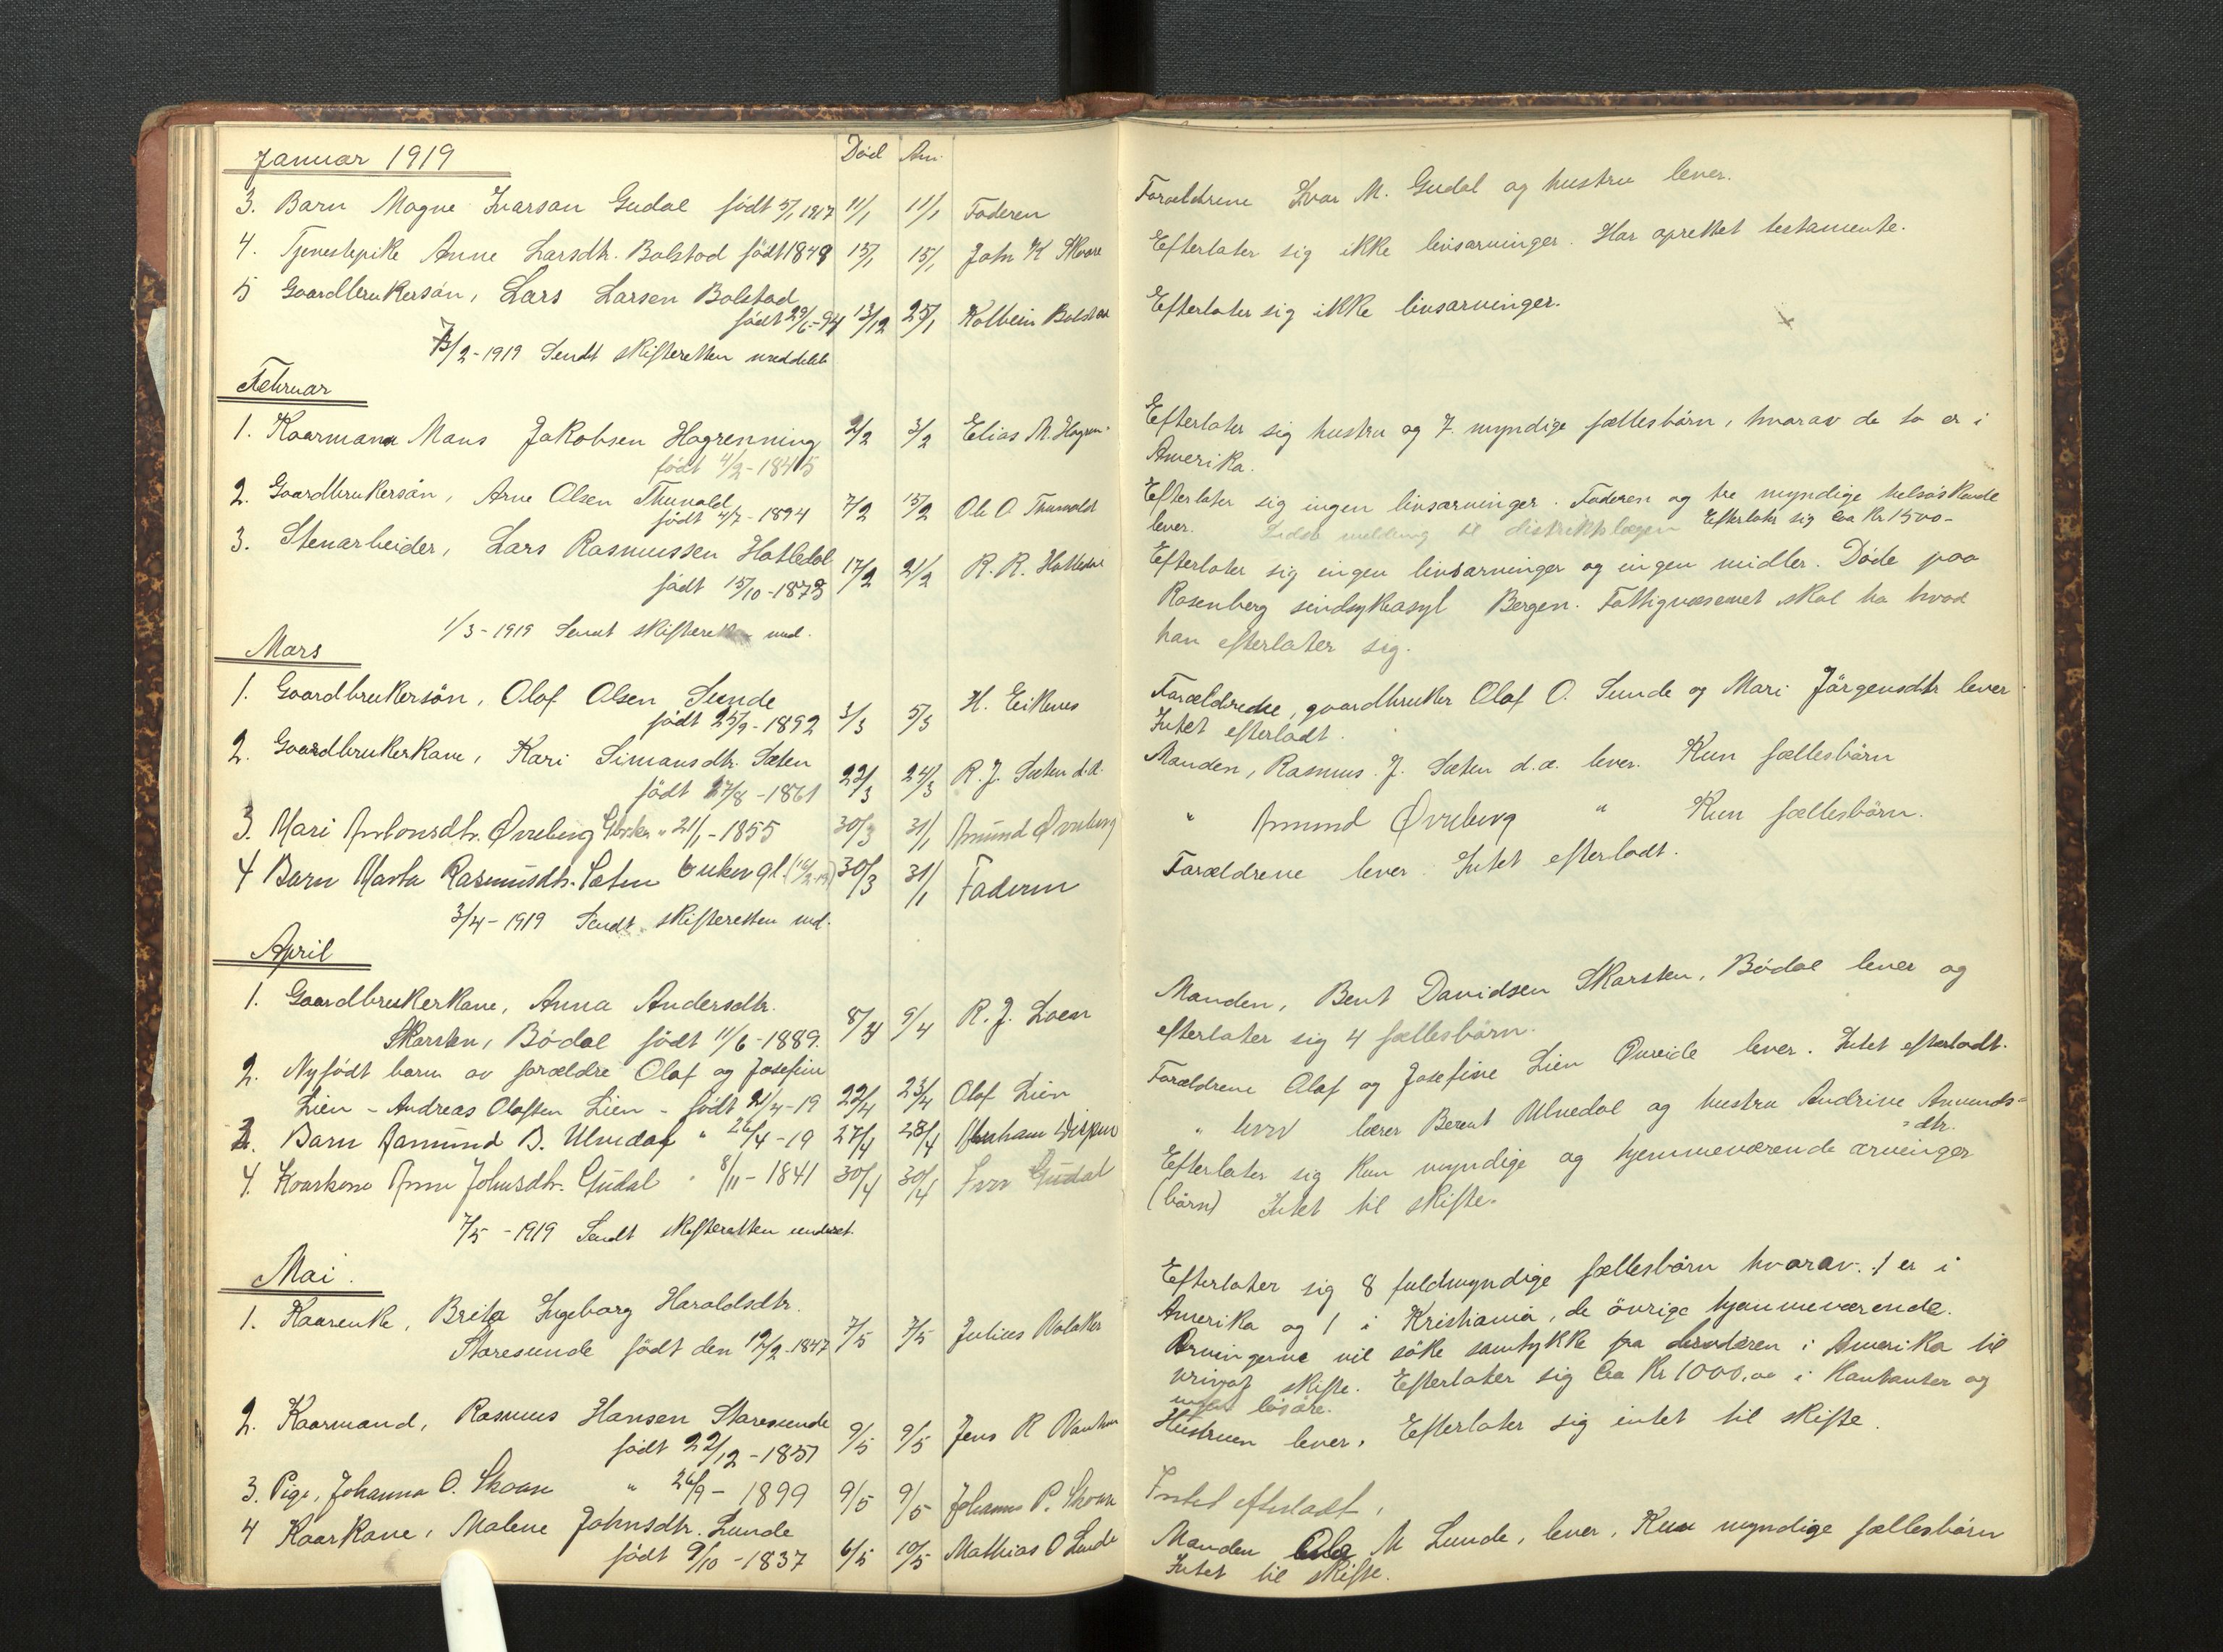 Januar 1919 Död An.
3. Barn Magne Ivarson Gudal födt 5/1 1917 11/1 11/1 Faderen
4. Tjenestepike Anne Larsdtr. Bolstad födt 1848 13/1 15/1 John K Skaare
5 Gaardbrukersön, Lars Larsen Bolstad
födt 29/6-94 13/12 25/1 Kolbein Bolstad
/2-1919 Sendt skifteretten meddelelse
Februar
1. Kaarmann Mons Jakobsen Hogrenning 2/2 3/2 Elias M. Hogren.
födt 4/2-1845
2. Gaardbrukersön, Arne Olsen Thunold
födt 4/7-1894 7/2 15/2 Ole O Thunold
3. Stenarbeider, Lars Rasmussen Hatledal
födt 15/10-1873 17/2 21/2 R. R. Hatledal
1/3-1919 Sendt skifterett med.
Mars
1. Gaardbrukersön, Olaf Olsen Sunde
födt 25/9-1892 3/3 5/3 H. Eikenes
2. Gaardbrukerkone, Kari Simonsdtr. Sæten
födt 27/8-1861 22/3 24/3 R. J. Sæten d.æ.
3. Mari Antonsdtr. Øvreberg " 21/1-1855 30/3 31/1 Amund Øvreberg
4 Barn Marta Rasmusdtr. Sæten 6 uker gl. 30/3 31/1 Faderen
3/4-1919 Sendt skifteretten md.
April
1. Gaardbrukerkone, Anna Andersdtr.
Skarsten, Bödal födt 11/6-1889. 8/4 9/4 R. J. Loen
2. Nyfödt barn av forældre Olaf og Josefine
Lien - Andreas Olafsen Lien - födt 21/4-19 22/4 23/4 Olaf Lien
3. Barn Aamund B. Ulvedal " 26/4-19 27/4 28/4 Abraham
4. Kaarkone Anne Johnsdtr. Gudal " 8/11-1841 30/4 30/4 Iver Gudal
7/5-1919 Sendt skifteretten underret.
Mai.
1. Kaarenke, Brita Ingeborg Haraldsdtr.
Staresunde födt den 12/2-1847 7/5 7/5 Julius
2. Kaarmand, Rasmus Hansen Staresunde
födt 22/12-1857 9/5 9/5 Jens R
3. Pige, Johanna O. Skaare " 26/9-1899 9/5 9/5 Johannes P. Skaare
4 Kaarkone, Malene Johnsdtr. Lunde
födt 9/10-1837 6/5 10/5 Mathias O Lunde
Forældrene Ivar M. Gudal og hustru lever.
Efterlater sig ikke livsarvinger. Har oprettet testamente.
Efterlater sig ikke livsarvinger.
Efterlater sig hustru og 7 myndige fællesbörn, hvorav de to er i
Amerika.
Efterlater sig ingen livsarvinger. Faderen og tre myndige helsöskende
lever. melding til distriktslægen Efterlater sig ca Kr 1500-
Efterlater sig ingen livsarvinger og ingen midler. Döde paa
Rosenberg sindsykeasyl Bergen. Fattigvæsenet skal ha hvad
han efterlater sig.
Forældrene, gaardbruker Olaf O. Sunde og Mari Jörgensdtr lever
Intet efterladt.
Manden, Rasmus J. Sæten d.æ. lever. Kun fællesbörn
" Amund Øvreberg " Kun fællesbörn.
Forældrene lever. Intet efterladt.
Manden, Bent Davidsen Skarsten, Bödal lever og
efterlater sig 4 fællesbörn.
Forældrene Olaf og Josefine Lien Övreide lever. Intet efterladt.
" lever lærer Berent Ulvedal og hustru Andrine Amunds-
-dtr.
Efterlater sig kun myndige og hjemmeværende arvinger
(börn) Intet til skifte.
Efterlater sig 8 fuldmyndige fællesbörn hvorav 1 er i
Amerika og 1 i Kristiania, de övrige hjemmeværende.
Arvingerne vil söke samtykke fra broderen i Amerika til
privat skifte. Efterlater sig ca Kr 1000,00 i kontanter og
noget lösöre.
Hustruen lever. Efterlater sig intet til skifte.
Intet efterladt.
Manden Ola M Lunde, lever. Kun myndige fællesbörn
Intet til skifte.